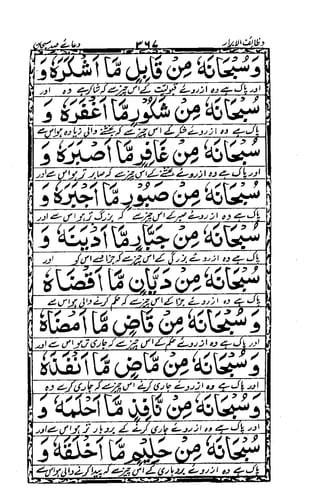 وظائف الابرار ۳۶۷ دعائے عہد سبحان
وَسُبْحَانَهٗ مِنْ قَابِلٍ مَّا اَشْكَرَهٗ وَ
اور پاک ہے وہ ازروئے قبولیت کے اس چیز سے کہ شاکر ہے وہ اور
سُبْحَانَهٗ مِنْ شَكُوْرٍ مَّا اَغْفَرَهٗ وَ
پاک ہے وہ ازروئے شکر کے اس چیز سے کہ بخشنے والی زیادہ ہو اس سے
سُبْحَانَهٗ مِنْ غَافِرٍ مَّا اَصْبَرَهٗ وَ
پاک ہے وہ ازروئے بخشنے کے اس چیز سے کہ صابر تر ہو اس سے اور
سُبْحَانَهٗ مِنْ صَبُوْرٍ مَّا اَجْبَرَهٗ وَ
پاک ہے وہ ازروئے صبر کے اس چیز سے کہ بزرگ تر ہو اس سے اور
سُبْحَانَهٗ مِنْ جَبَّارٍ مَّا اَدْيَنَهٗ وَ
پاک ہے وہ ازروئے بزرگی کے اس چیز سے کہ جزا دے اس کو اور
سُبْحَانَهٗ مِنْ دَيَّانٍ مَّا اَقْضَاهُ
پاک ہے وہ ازروئے جزا کے اس چیز سے کہ حکم کرنے والی ہو اس سے
وَسُبْحَانَهٗ مِنْ قَاضٍ مَّا اَمْضَاهُ
اور پاک ہے وہ ازروئے حکم کے اس چیز سے کہ جاری تر ہو اس سے
وَسُبْحَانَهٗ مِنْ مَّاضٍ مَّا اَنْفَذَهٗ
اور پاک ہے وہ ازروئے جاری کرنے کے اس چیز سے کہ جاری کرے وہ
وَسُبْحَانَهٗ مِنْ نَّافِذٍ مَّا اَحْلَمَهٗ وَ
اور پاک ہے وہ ازروئے جاری کرنے کے بردبار تر ہو اس سے اور
سُبْحَانَهٗ مِنْ حَلِيْمٍ مَّا اَخْلَقَهٗ وَ
پاک ہے وہ ازروئے بردباری کے اس چیز سے کہ پیدا کرنے والی ہو اس سے